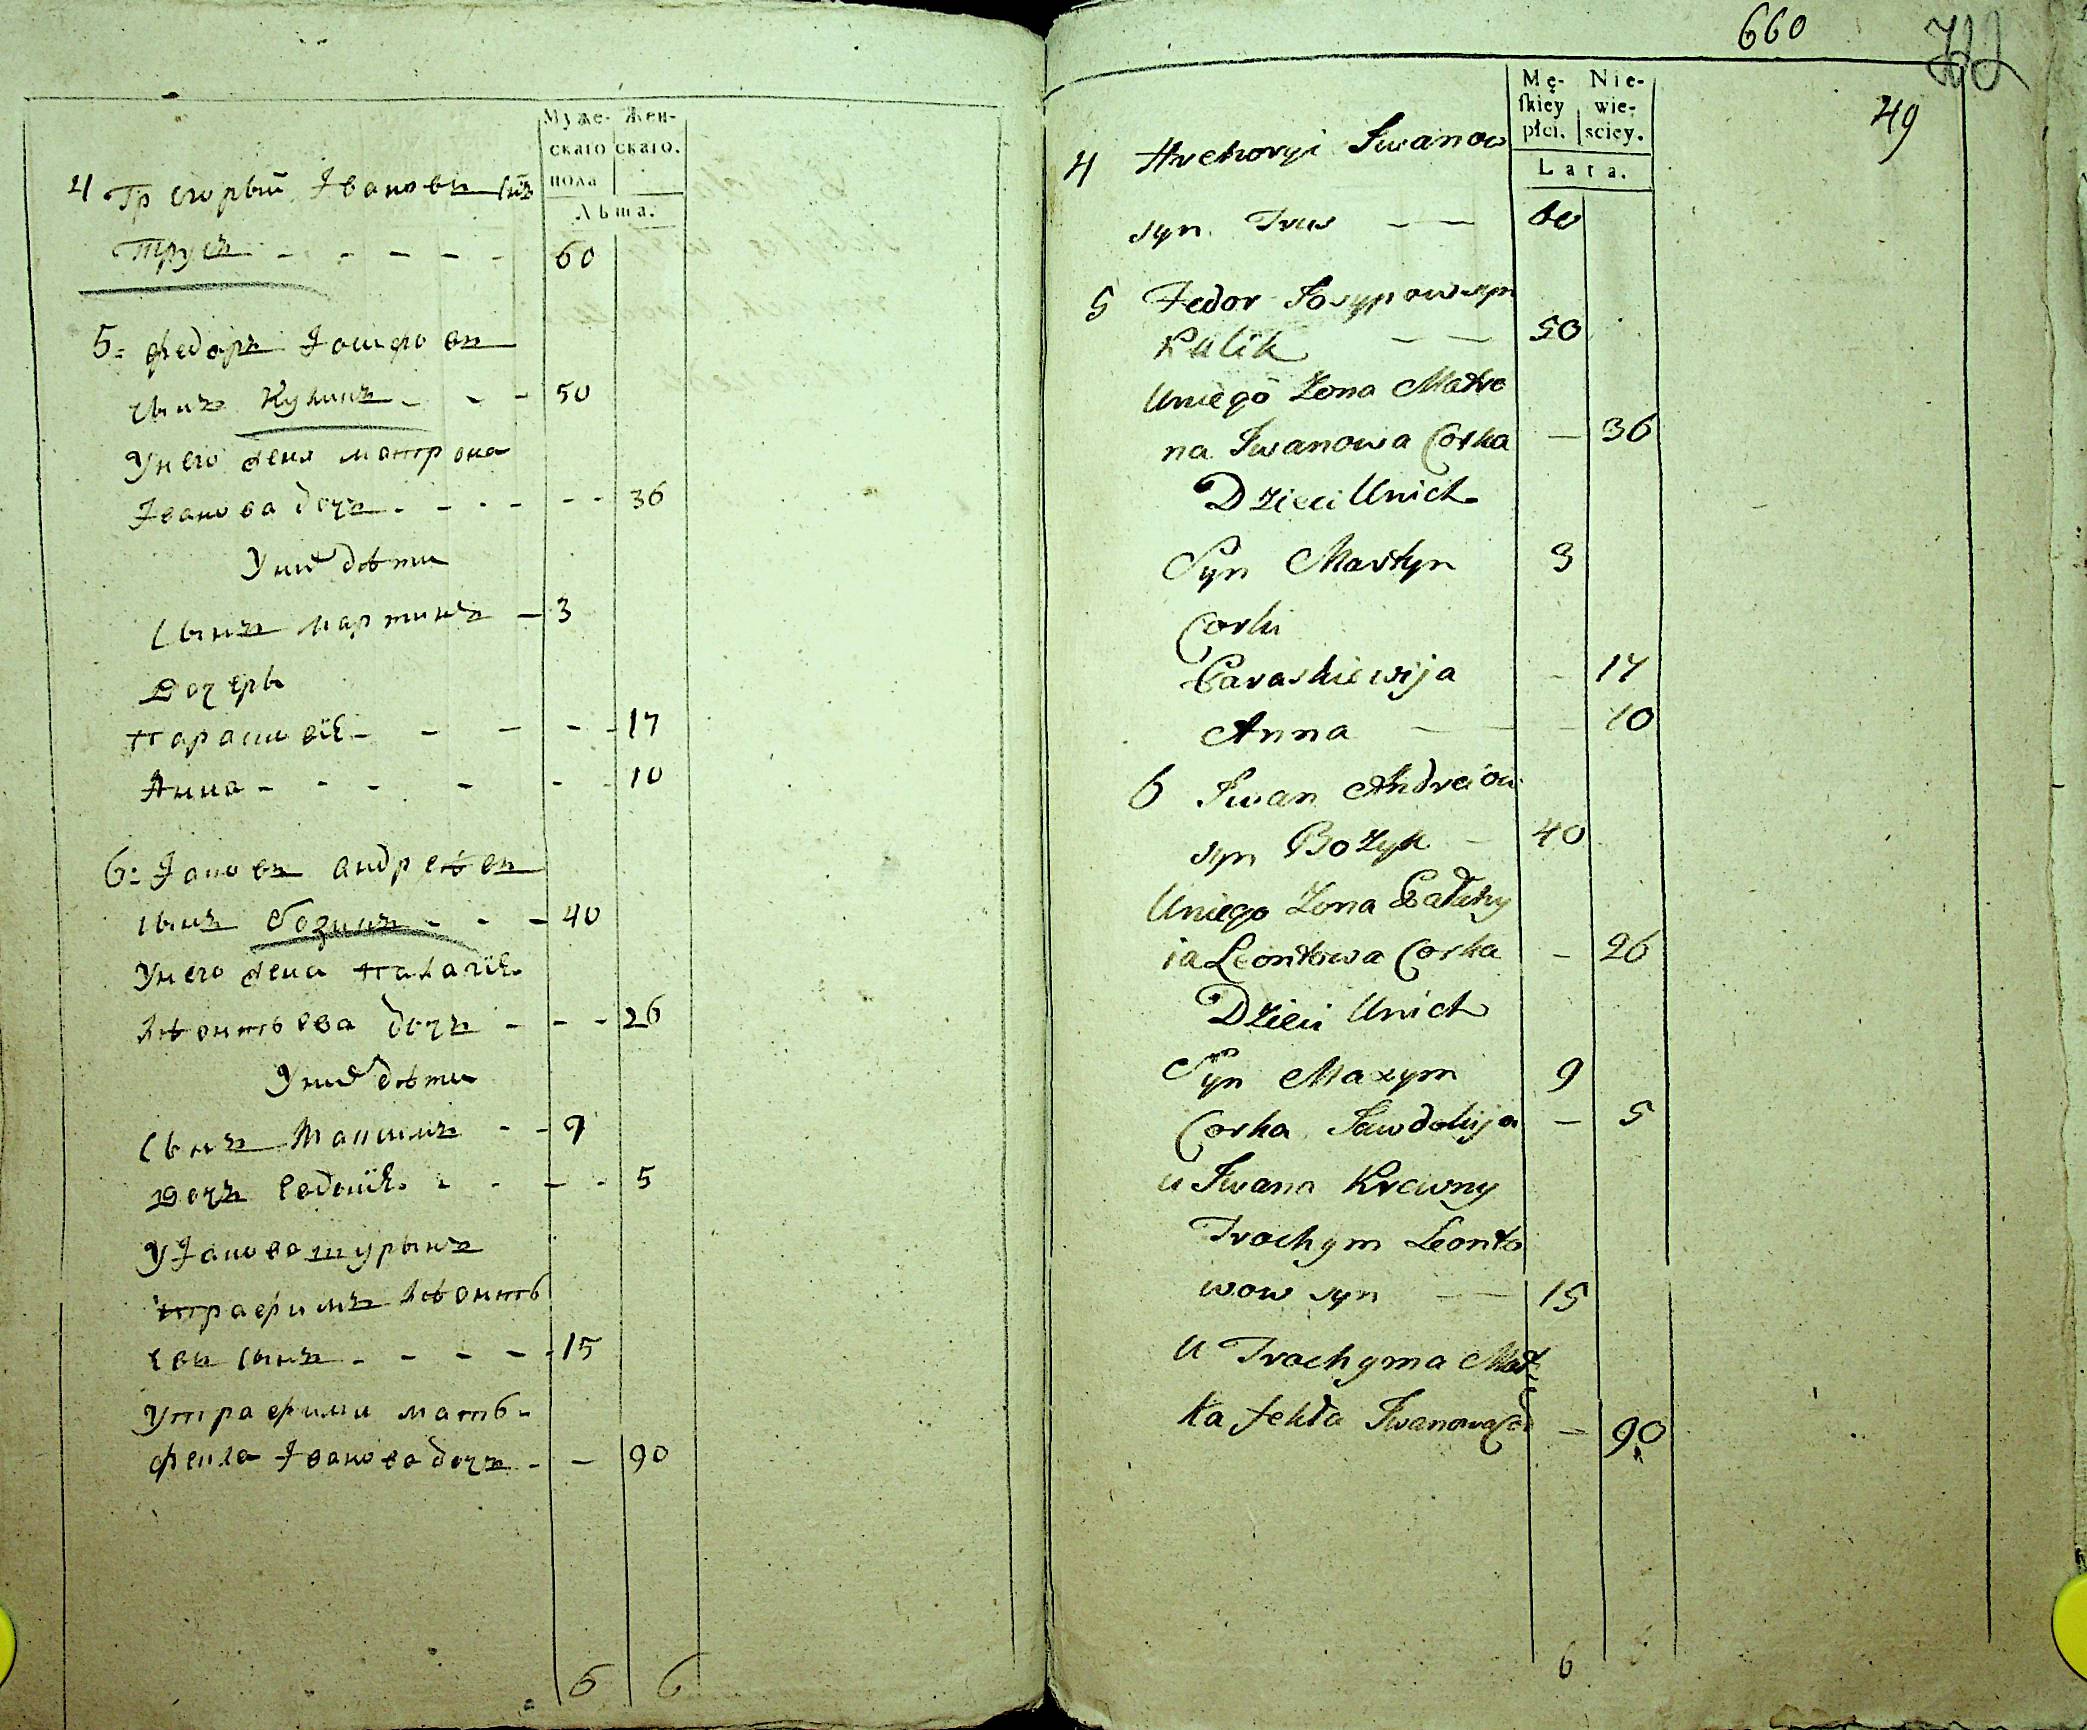 Муже- Жен-
скаго скаго.
пола
Лѣта.
4 Григорый Івановъ сынъ
Трусъ - - - - - 60
5: федоръ Іосифовъ
сынъ Куликъ - - - 50
Унего жена матрона
Іванова дочъ - - - - - - 36
Уних дѣти
Сынъ мартинъ - 3
Дочеръ
Парасковія - - - - - 17
Анна - - - - - - 10
6: Іаковъ андрѣевъ
сынъ Бозикъ - - - 40
Унего жена Палагія
лѣонтьева дочъ - - - 26
Уних дѣти
Сынъ Максимъ - - 9
Дочъ Евдокія - - - - 5
УІакова шурынъ
трафимъ лѣонть
евъ сынъ - - - - - 15
Утрафима мать -
фекла Іванова дочъ - - 90
6 6
660
49
Mę- Nie-
skiey wie-
płci. sciey.
Lata.
4 Hrehoryi Iwanow
syn Trus - - 60
5 Fedor Josypow syn
Kulik - - 50
Uniego Żona Matre
na Iwanowa Corka - 36
Dzieci Unich
Syn Martyn 3
Corki
Paraskiewija - 17
Anna - - - 10
6 Iwan Andreiow
syn Bozyk - 40
Uniego Żona Pałahy
ia Leontowa Corka - 26
Dzieci Unich
Syn Maxym 9
Corka Jawdokija - 5
u Iwana Krewny
Trochym Leonto
wow syn - - 15
U Trochyma Mat
ka fekła Iwanowa Cor - 90
6 6